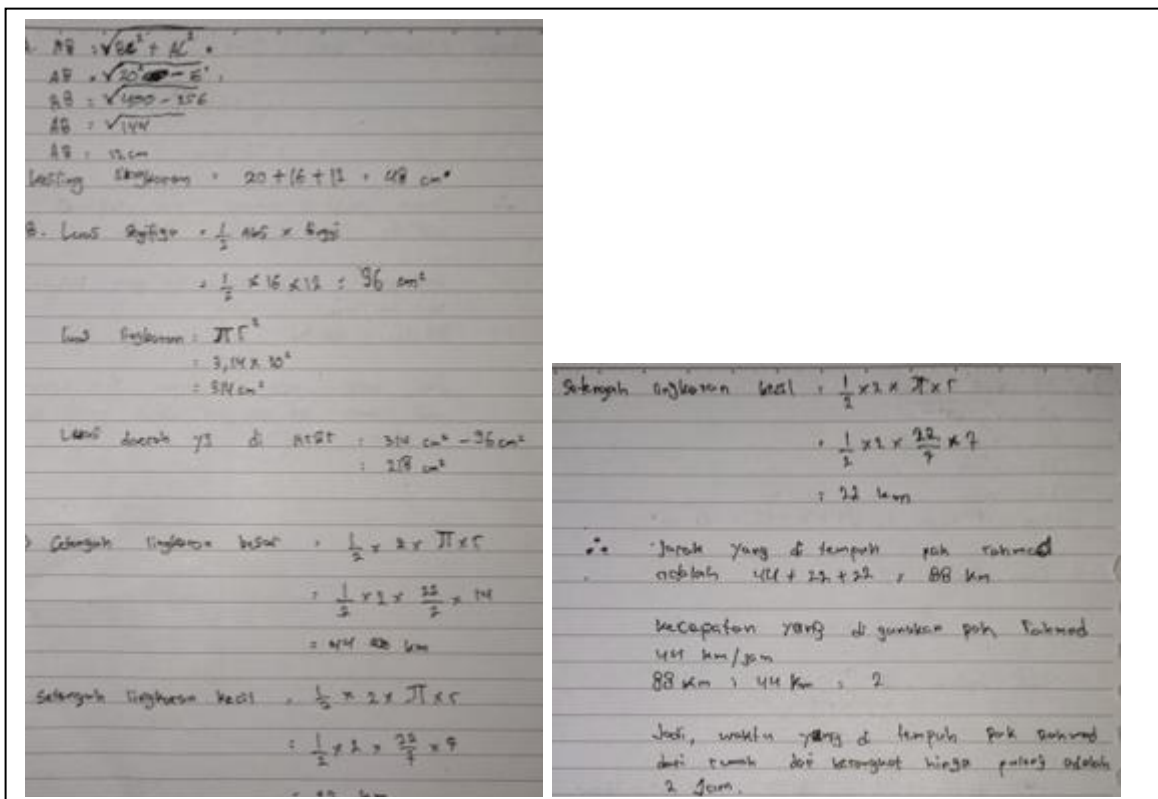 AB = √BC² + AC²
AB = √20² -
AB = √400 - 256
AB = √144
AB = 12 cm
= 20 + 16 + 12 = 48 cm
B. Luas = 1/2 Alas × tinggi
= 1/2 × 16 × 12 = 96 cm²
Luas lingkaran = πr²
= 3,14 × 10²
= 314 cm²
Luas daerah yg di = 314 cm² - 96 cm²
= 218 cm²
Setengah lingkaran besar = 1/2 × 2 × π × r
= 1/2 × 2 × 22/7 × 14
= 44 km
Setengah lingkaran kecil = 1/2 × 2 × π × r
= 1/2 × 2 × 22/7 × 7
= 22 km
Setengah lingkaran kecil = 1/2 × 2 × π × r
= 1/2 × 2 × 22/7 × 7
= 22 km
∴ Jarak yang di tempuh pak rahmad
adalah 44 + 22 + 22 = 88 km
kecepatan yang di gunakan pak rahmad
44 km/jam
88 km : 44 km = 2
Jadi, waktu yang di tempuh pak rahmad
dari rumah dari berangkat hinga pulang adalah
2 Jam.